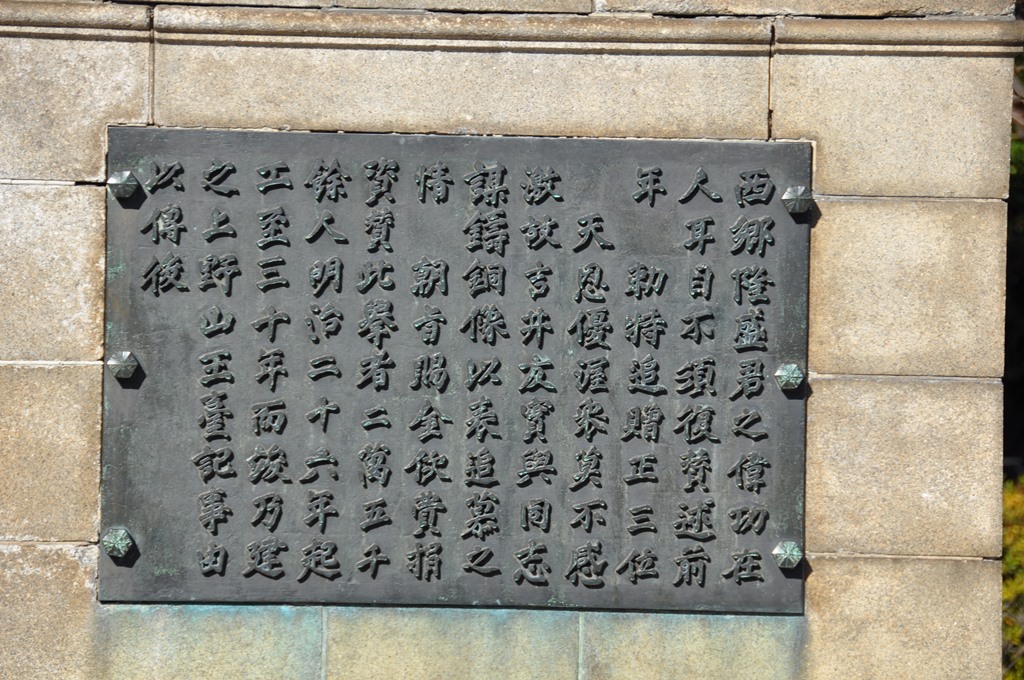 西郷隆盛君之偉功在
人耳目不須復贅述前
年
勅特追贈正三位
天恩優渥衆莫不感
激故吉井友實與同志
謀鑄銅像以表追慕之
情
朝旨賜金佽費捐
資賛此擧者二萬五千
餘人明治二十六年起
工至三十年而竣乃建
之上野山王臺記事由
以傳後